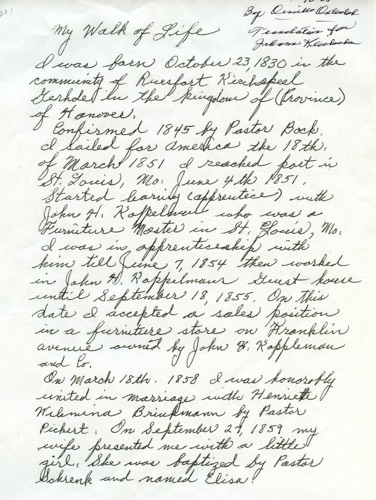 By Orville Osterbuk
Translation for
My Walk of Life
I was born October 23, 1830 in the
community of Ruesfort Kirchspeel
Gerhde in the kingdom of (Province)
of Hanover.
Confirmed 1845 by Pastor Bock.
I sailed for America the 18th.
of March 1851 I reached port in
St. Louis, Mo. June 4th 1851.
Started learning (apprentice) with
John H. Koppelman who was a
Furniture Master in St. Louis, Mo.
I was in apprenticeship with
him till June 7, 1854 then worked
in John H. Koppelmans Guest house
until September 18, 1855. On this
date I accepted a sales position
in a furniture store on Franklin
avenue owned by John H. Koppleman
and Co.
On March 18th. 1858 I was honorably
united in marriage with Henriett
Wilemina Brinkmann by Pastor
Pickert. On September 29, 1859 my
wife presented me with a little
girl. She was baptized by Pastor
Schrenk and named Elisa.